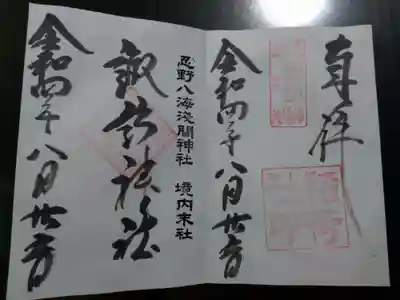 奉拝
令和四年八月廿日
忍野八海淺間神社 境内末社
諏訪神社
令和四年八月廿日